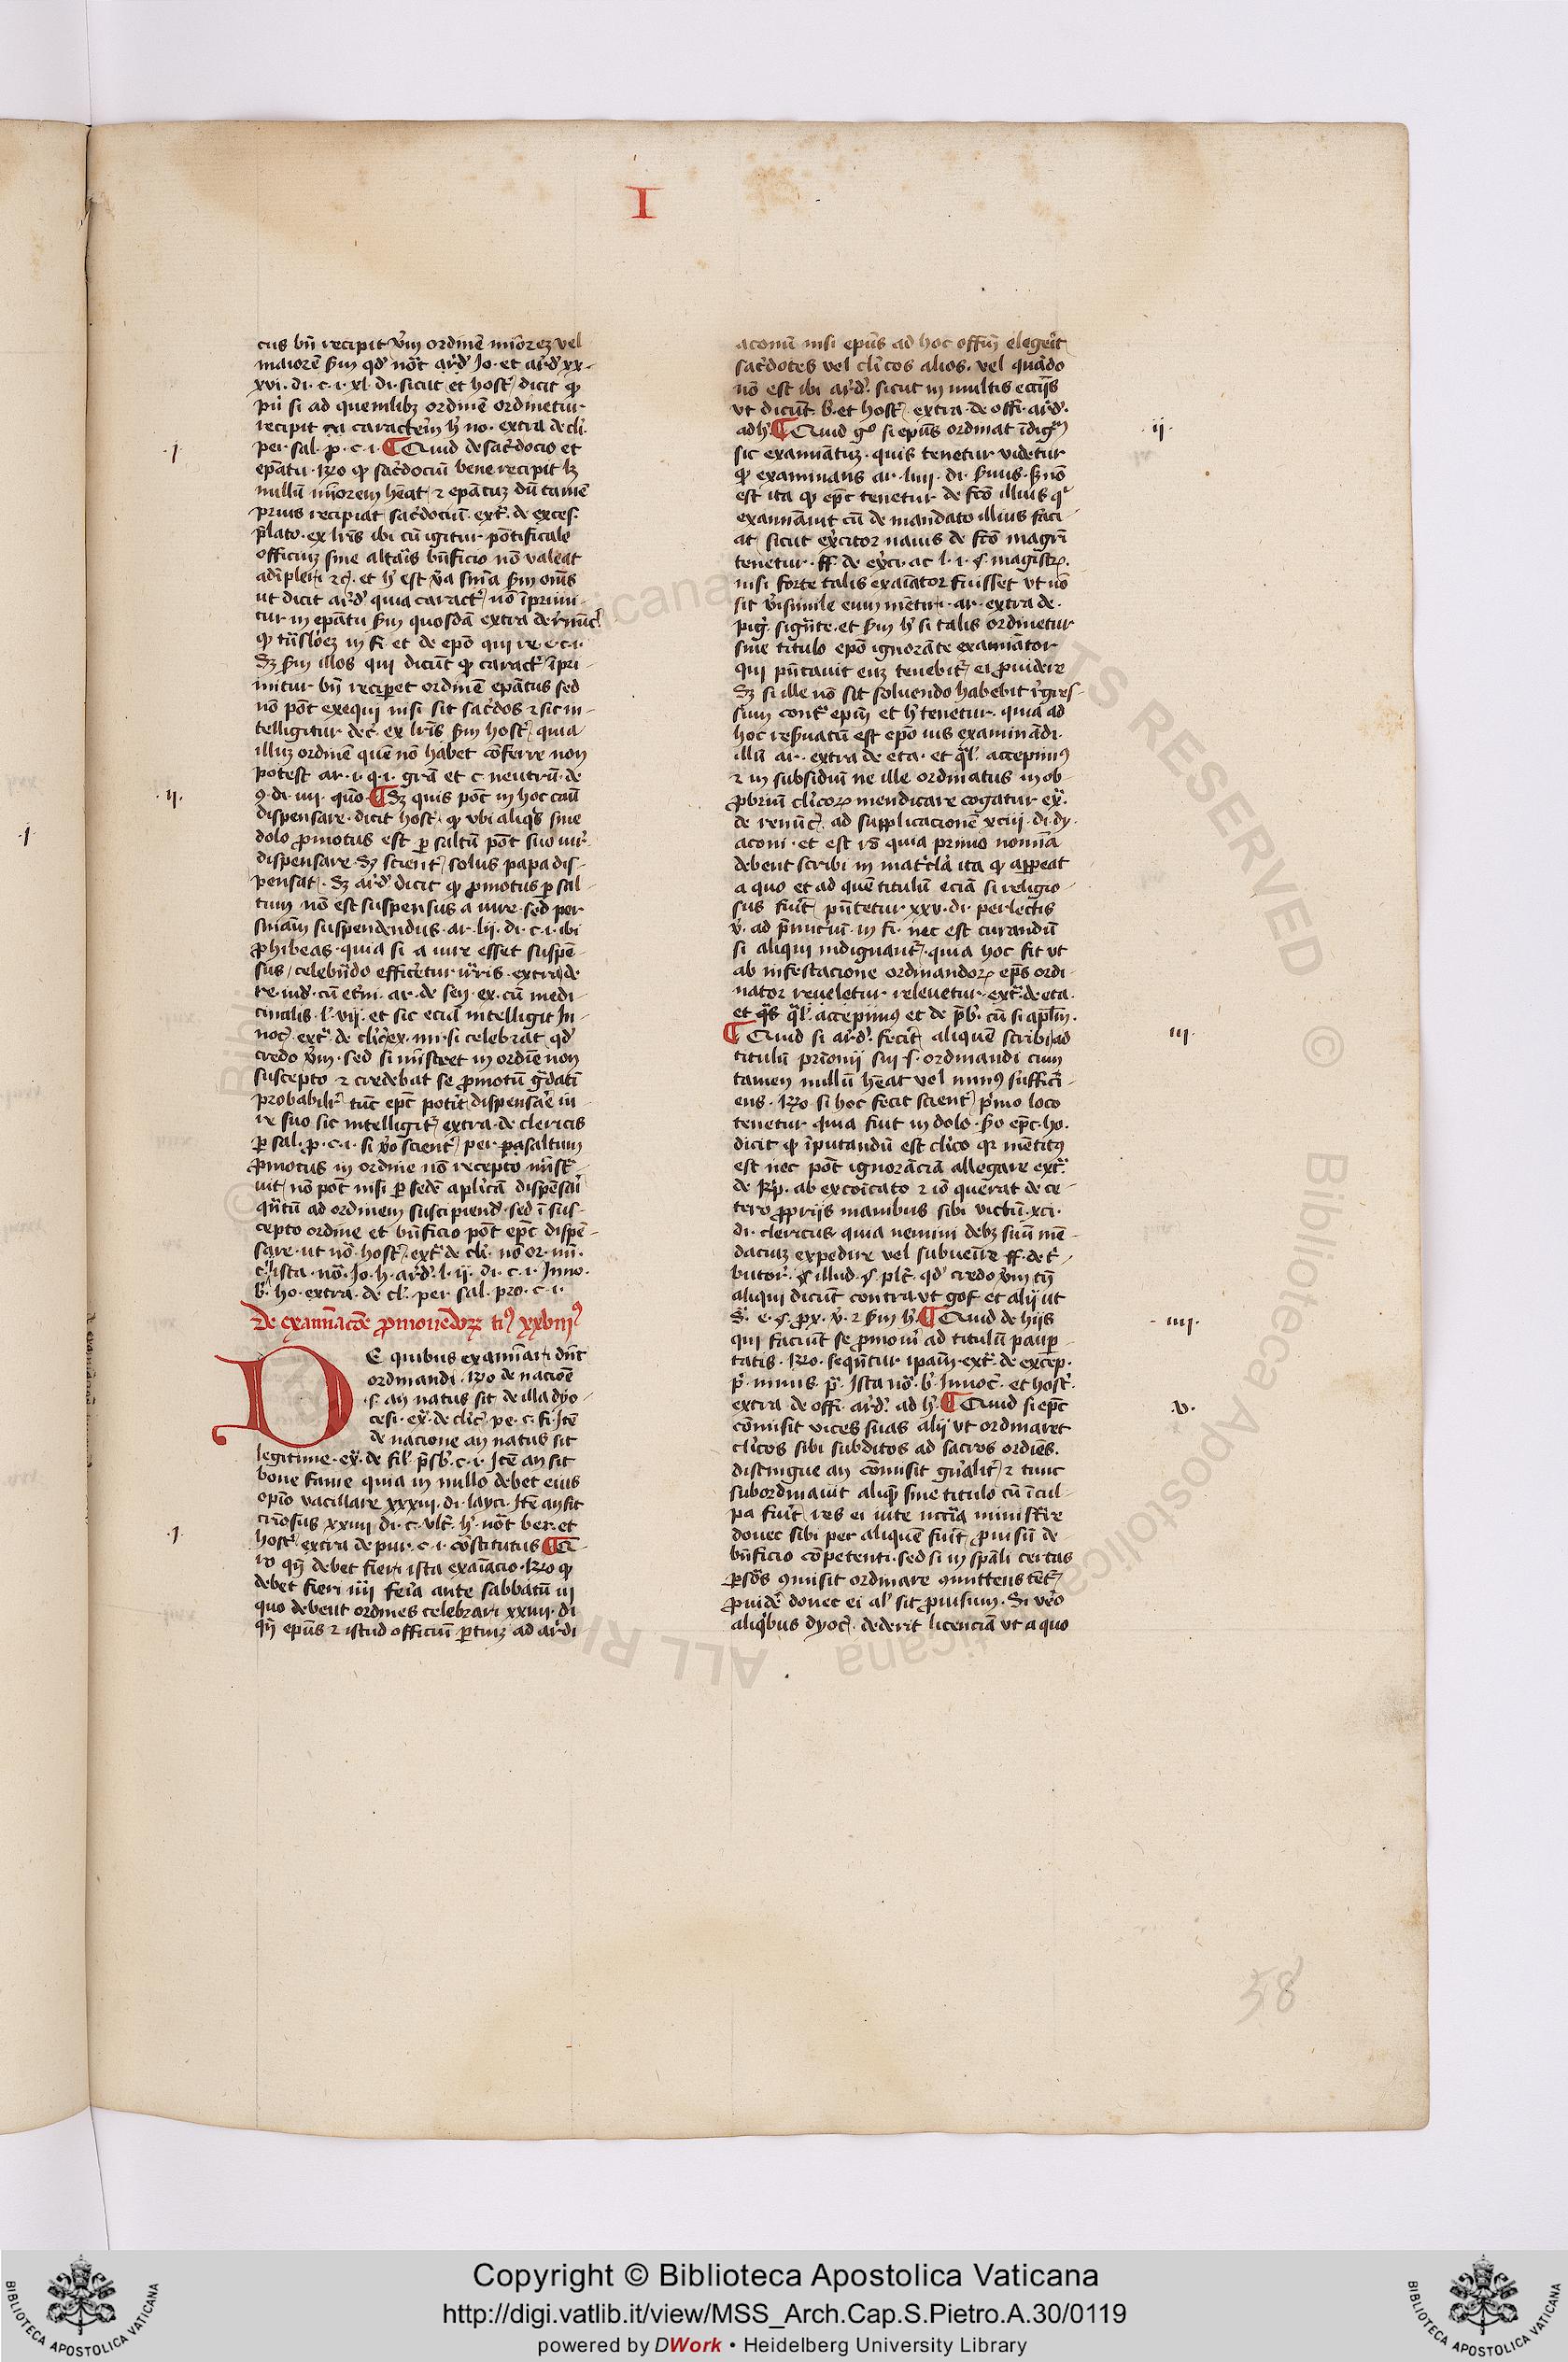 I
cus bn̄ recipit v̄m ordinē mīorez vel
maiorē sm̄ qd' nōt ard' Jo. et ard' xx-
xvi. di. c. i. xl. di. sicut et host' dicit qꝫ
recipit
per sal. p. c. i. ¶ Quid de sac'docio et
.i.
ep̄atu. Rño qꝫ sac'dociū bene recipit lꝫ
nullū mīorem hēat. ⁊ ep̄atuꝫ dū tamē
prius recipiat sac'dociū. ext'. de exces.
p̄lato. ex lr̄is ibi cū igitur pōtificale
officiuꝫ sine altaīs bn̄ficio nō valeat
ut dicit ard' quia caract' nō īprimi-
tur in ep̄atu sm̄ quosdā extra de
Sꝫ sm̄ illos qui dicūt qꝫ caract' īpri-
mitur bn̄ recip̄et ordinē ep̄atus sed
nō pōt exequi nisi sit sac'dos ⁊ sic in-
telligitur dec. ex lr̄is sm̄ host' quia
illuꝫ ordinē quē nō habet cōferre non
potest ar. i. q. i. grā et c. neutrū. de
ꝯ. di. iiii. quō. ¶ Sꝫ quis pōt in hoc cāu
.ii.
dispensare. dicit host' qꝫ vbi aliqs sine
dolo ꝓmotus est ꝑ saltū pōt suo iur'
dispensare. Sꝫ scient' solus papa dis-
pensat. Sꝫ ard' dicit qꝫ ꝓmotus ꝑ sal-
tum nō est suspensus a iure. sed per
sniam suspendendus. ar. lii. di. c. i. ibi
ꝓhibeas. quia si a iure esset suspē-
sus / celebrādo efficeretur irr̄is. extra de
re iud. cū et'ni. ar. de sen. ex. cū medi-
cinalis. l. vii. et sic eciā intelligit In-
noc. ext'. de clic. ex. mi. si celebrat qd'
credo v̄m. sed si mīstret in ordīe non
suscepto ⁊ credebat se ꝓmotū g̃datī
probabilr' tūc ep̄c potit dispensare in
re suo sic intelligit' extra. de clericis
ꝑ sal. p. c. i. si v̄o scient' per saltum
ꝓmotus in ordine nō recepto mīst'-
uit / nō pōt nisi ꝑ sedē aplicā dispēsāi
q̄ntū ad ordinem suscipiend'. sed ī sus-
cepto ordine et bn̄ficio pōt ep̄c dispē-
sare. ut nō. host'. ext' de cli. nō or. mi.
c. i. ista. nō. Jo. h. ard'. l. ii. di. c. i. Inno.
b'. ho. extra. de cl'. per sal. pro. c. i.
De examīacōe ꝓmouendoꝝ ti' xxviii'
DE quibus examīari dn̄t
ordinandi. Rño de nacōe
.s. an natus sit de illa dyo-
cesi. ex'. de clic'. pe. c. fi. Itē
de nacione an natus sit
legitime. ex'. de fil'. p̄sb'. c. i. Itē an sit
bone fame quia in nullo debet eius
opīo vacillare xxxiii. di. layci. Itē an sit
criōsus xxiiii di. c. vlt'. h' nōt ber. et
host' extra de pur. c. i. cōstitutus ¶ Et
.i.
io qn̄ debet fieri ista exaīacio. Rño qꝫ
debet fieri iiii feria ante sabbatū in
quo debent ordines celebrari xxiiii. di
qn̄ ep̄us ⁊ istud officiū ꝑtinꝫ ad ardi
aconū nisi ep̄us ad hoc offm̄ elegerit
sac'dotes vel cl'icos alios. vel quādo
nō est ibi ard'. sicut in multis ecc'iis
vt dicūt b'. et host'. extra. de offi. ard'.
ad h' ¶ Quid gº si ep̄us ordinat īdigᵐ
ii.
sic examīatuꝫ. quis tenetur videtur
qꝫ examinans ar. liiii. di. suus.
est ita qꝫ ep̄c tenetur de fcō illius qⁱ
examīauit cū de mandato illius faci-
at / sicut ex'citor nauis de fcō magr̄i
tenetur. ff. de ex'ci. ac. l. i. §. magistr̄.
nisi forte talis exaīator fuisset vt nō
sit v̄isimile eum mētiri. ar. extra de.
pig'. signte. et sm̄ h' si talis ordinetur
sine titulo ep̄o ignorāte examīator
qui p̄ntauit euꝫ tenebit' ei ꝓuidere
Sꝫ si ille nō sit soluendo habebit īgres-
sum cont' ep̄m et h' tenetur. quia ad
hoc res'uatū est ep̄o ius examinādi.
illū ar. extra de eta. et q̄l'. accepimꝰ
⁊ in subsidiū ne ille ordinatus in ob-
ꝓbriū cl'icoꝝ mendicare cogatur ex'.
de renūc'. ad supplicacionē xciii. di. dy-
aconi. et est rō quia primo nomīa
debent scribi in mat'cla ita qꝫ appeat
a quo et ad quē titulū eciā si religio-
sus fuit / p̄ntetur xxv. di. perlectis
v̄. ad p̄micriū. in fi. nec est curandū
si aliqui indignant'. quia hoc fit vt
ab infestacione ordinandoꝝ ep̄s ordi-
nator reueletur releuetur. ext'. de eta.
et q̄l'. accepimꝰ et de p̄b'. cū si ap̄lm̄.
¶ Quid si ard'. fecit aliquē scribi ad
iii.
titulū prīonii sui .s. ordinandi cum
tamen nullū hēat vel minꝰ suffici-
ens. Rño si hoc fecit scient' p'mo loco
tenetur quia fuit in dolo. S'o ep̄c. ho.
dicit qꝫ īputandū est cl'ico qꝛ mētitꝰ
est nec pōt ignorāciā allegare ext'.
de R'p. ab excōicato ⁊ iō querat de ce-
tero ꝓpriis manibus sibi victū. xci.
di. clericus. quia nemini debꝫ suū mē-
daciuꝫ expedire vel subueīre ff. de t'-
butor'. §. illud. §. plt'. qd' credo v̄m tn̄
aliqui dicūt contra. vt gof. et alii ut
s'. e. §. px. v̄. ⁊ sm̄ h' ¶ Quid de hiis
iiii.
qui faciūt se ꝓmoui' ad titulū pauꝑ-
tatis. Rño. sequn̄tur ipam. ext'. de excep.
p'. minus. p'. Ista nō. b'. Innoc'. et host'.
extra de offi. ard'. ad h' ¶ Quid si ep̄c
v.
cōmisit vices suas alii vt ordinaret
cl'icos sibi subditos ad sacros ordīes.
distingue an cōmisit gn̄'alit' ⁊ tunc
subordinauit aliqm̄ sine titulo cū ī cul-
pa fuit
donec sibi per aliquē fuit ꝓuisū de
bn̄ficio cōpetenti. sed si in sp̄ali certas
ꝑsōs ꝯmisit ordinare ꝯmittens tēt'
ꝓuidē donec ei al' sit ꝓuisum. Si vero
aliq'bus dyoc'. dederit licenciā vt a quo
58
Copyright © Biblioteca Apostolica Vaticana
http://digi.vatlib.it/view/MSS_Arch.Cap.S.Pietro.A.30/0119
powered by DWork • Heidelberg University Library